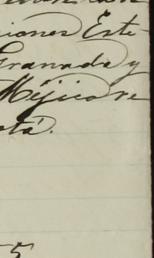 ciones Este-
Granada y
Méjico se
otá.
5